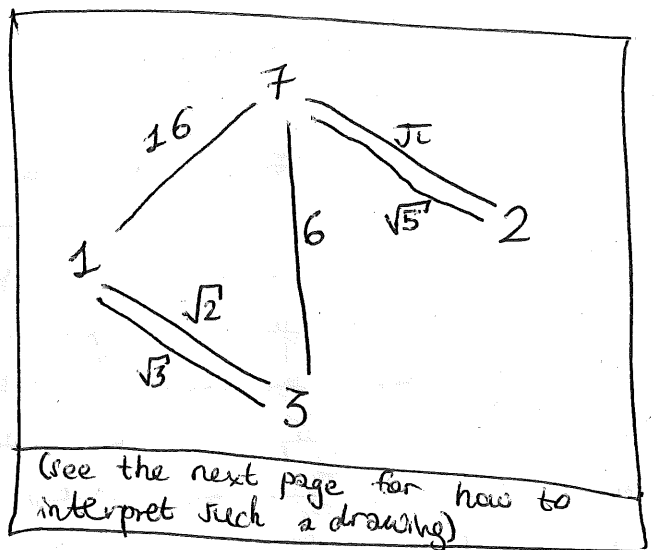 7
16
π
6
√5
2
1
√2
√3
3
(see the next page for how to
interpret such a drawing)